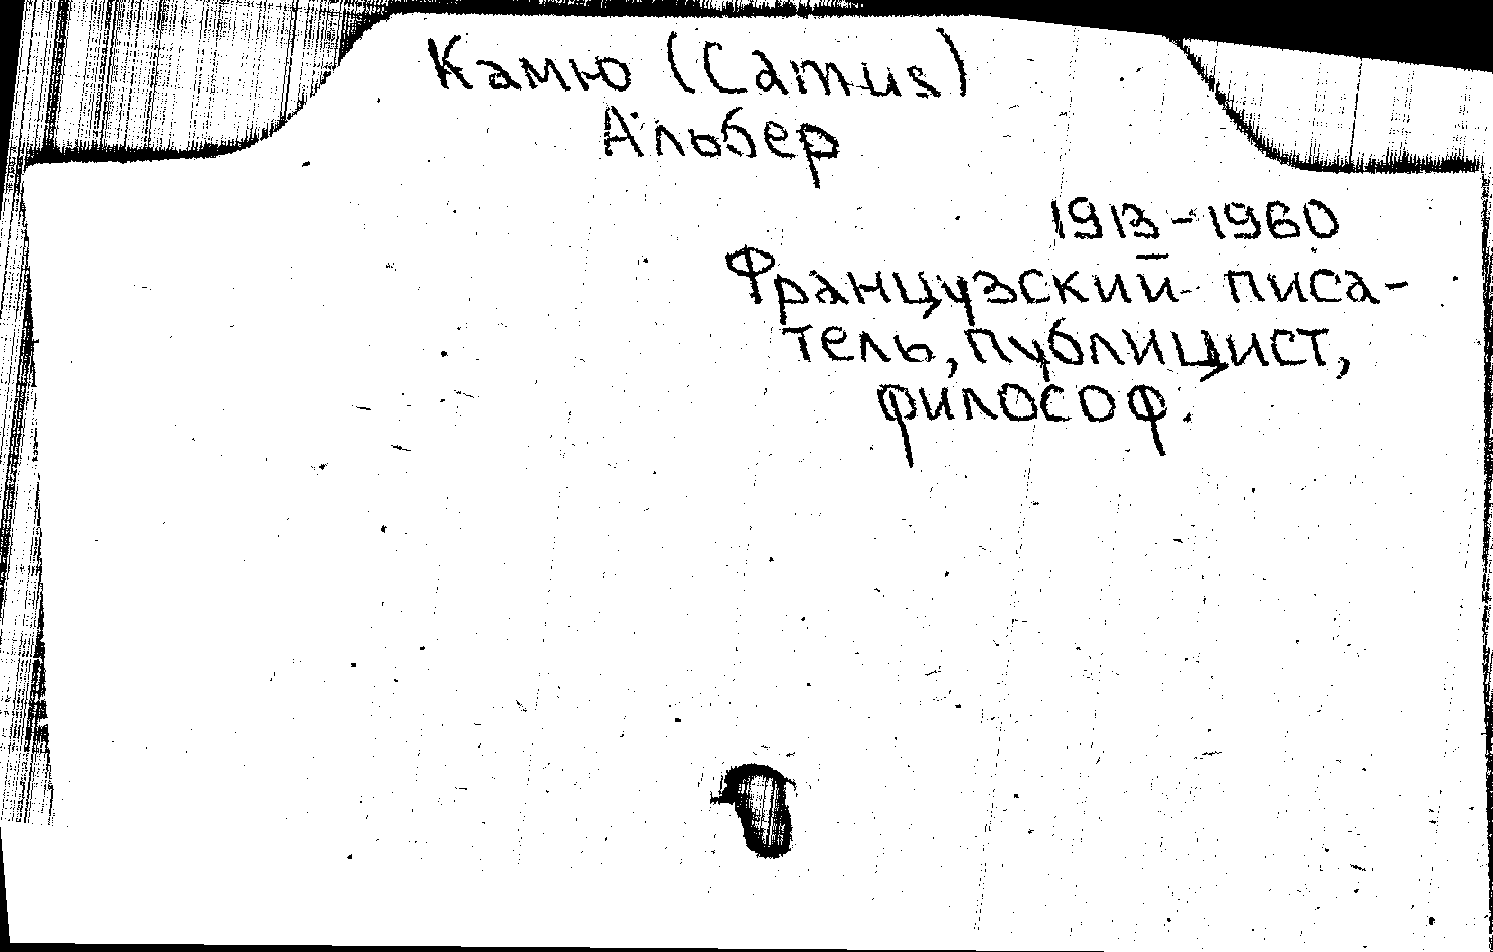 Камю (Camus)
Альбер
1913-1960
Французский писа-
тель, публицист,
философ.